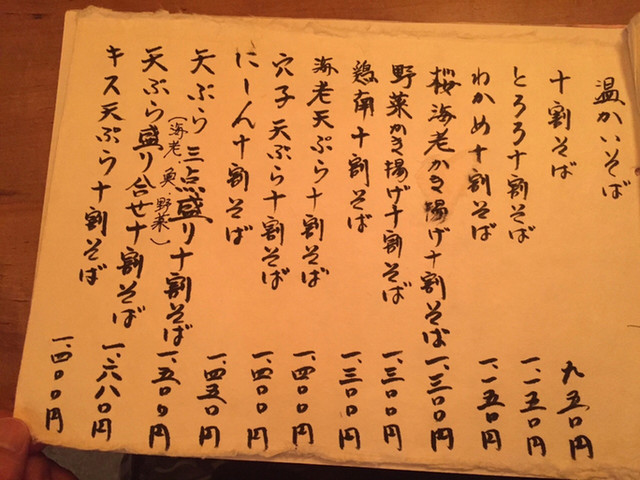 温かいそば
十割そば 九五〇円
とろろ十割そば 一、一五〇円
わかめ十割そば 一、一五〇円
桜海老かき揚げ十割そば 一、三〇〇円
野菜かき揚げ十割そば 一、三〇〇円
鶏南十割そば 一、三〇〇円
海老天ぷら十割そば 一、四〇〇円
穴子天ぷら十割そば 一、四〇〇円
にしん十割そば 一、四五〇円
天ぷら三点盛り十割そば 一、五〇〇円
(海老、魚、野菜)
天ぷら盛り合せ十割そば 一、六八〇円
キス天ぷら十割そば 一、四〇〇円